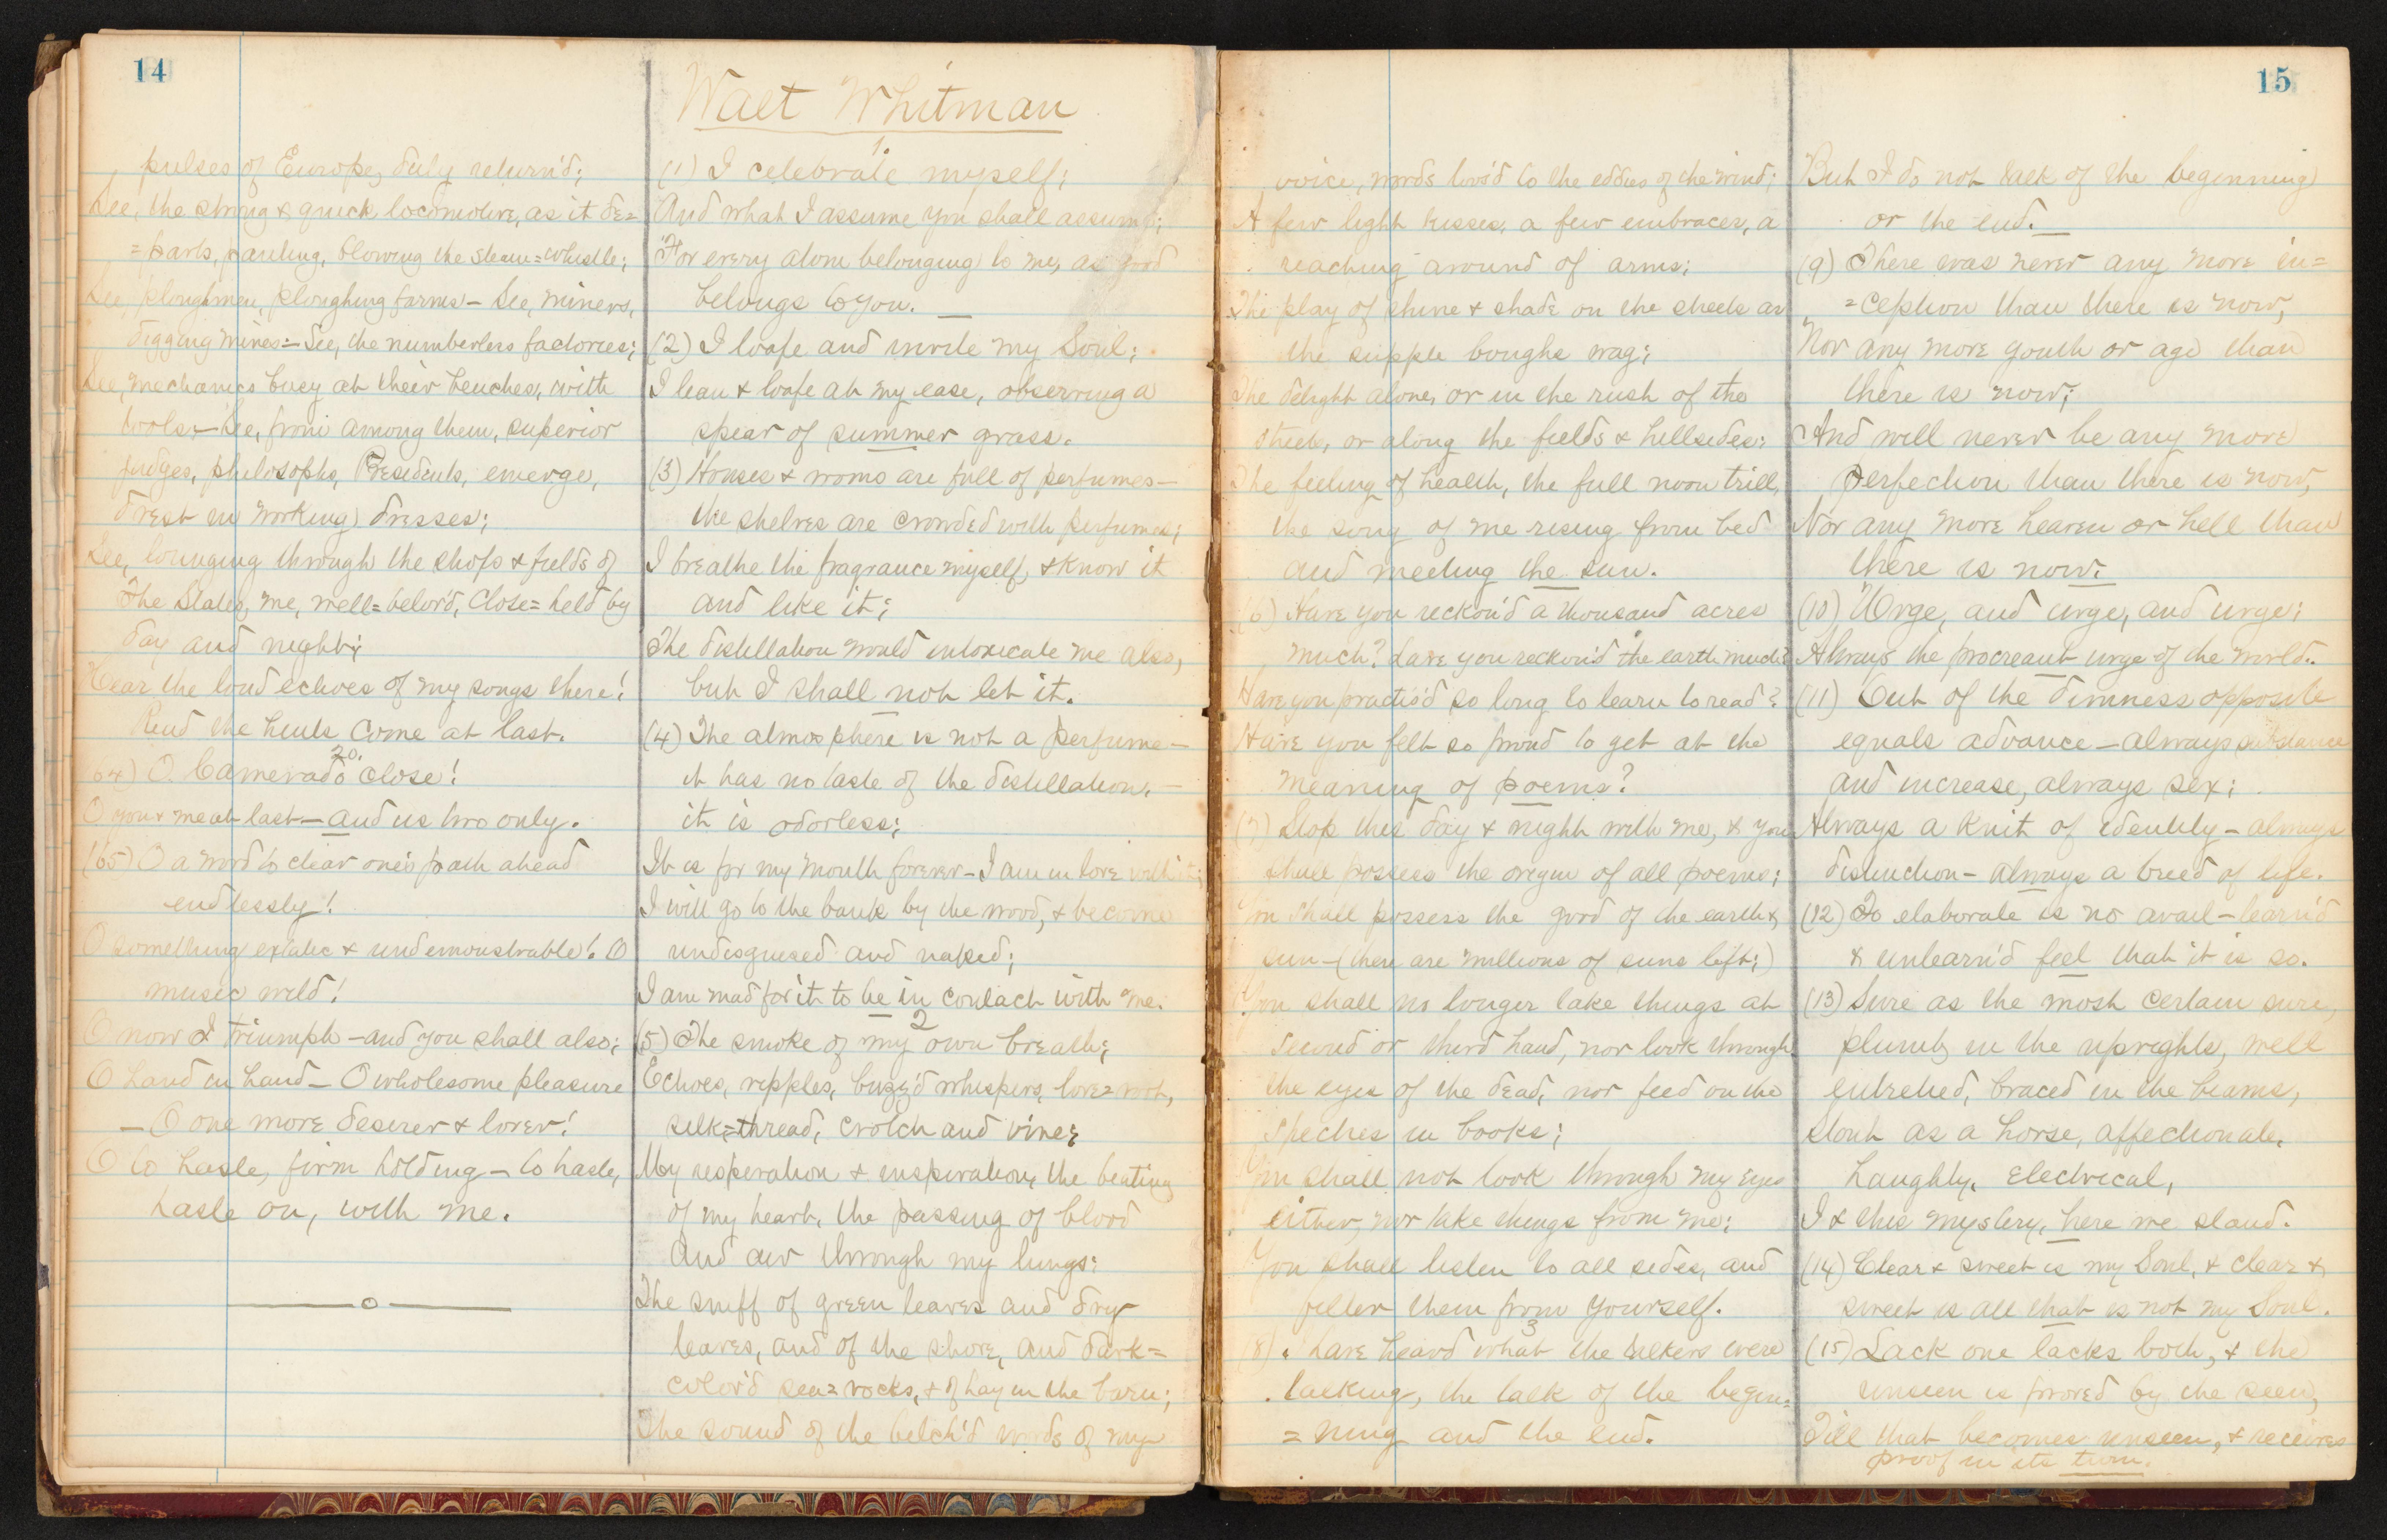 14
pulses of Europe, duly return'd;
See, the strong & quick locomotive, as it de=
=parts, panting, blowing the steam=whistle;
See, ploughmen, ploughing farms— See, miners,
digging mines:— See, the numberless factories;
See, mechanics busy at their benches, with
tools;— See, from among them, superior
judges, philosophs, Presidents, emerge,
drest in working dresses;
See, lounging through the shops & fields of
The States, me, well=belov'd, Close=held by
day and night;
Hear the loud echoes of my songs there!
Read the hints come at last.
20.
(64) O Camerado close!
O you & me at last— and us two only.
(65) O a word to clear one's path ahead
endlessly!
O something extatic & undemonstrable! O
music wild!
O now I triumph— and you shall also;
O hand in hand— O wholesome pleasure
— O one more desirer & lover!
O to haste, firm holding— to haste,
haste on, with me.
Walt Whitman
1.
(1) I celebrate myself;
And what I assume you shall assume;
For every atom belonging to me, as good
belongs to you.
(2) I loafe and invite my Soul;
I lean & loafe at my ease, observing a
spear of summer grass.
(3) Houses & rooms are full of perfumes—
the shelves are crowded with perfumes;
I breathe the fragrance myself, & know it
and like it;
The distillation would intoxicate me also,
but I shall not let it.
(4) The atmosphere is not a perfume—
it has no taste of the distillation,—
it is odorless;
It is for my mouth forever— I am in love with it;
I will go to the bank by the wood, & become
undisguised and naked;
I am mad for it to be in contact with me.
2
(5) The smoke of my own breath;
Echoes, ripples, buzz'd whispers, love=root,
silk=thread, crotch and vine;
My respiration & inspiration, the beating
of my heart, the passing of blood
and air through my lungs;
The sniff of green leaves and dry
leaves, and of the shore, and dark=
color'd sea=rocks, & of hay in the barn;
The sound of the belch'd words of my
15
voice, words loos'd to the eddies of the wind;
A few light kisses, a few embraces, a
reaching around of arms;
The play of shine & shade on the streets as
the supple boughs wag;
The delight alone, or in the rush of the
streets, or along the fields & hillsides;
The feeling of health, the full noon trill,
the song of me rising from bed
and meeting the sun.
(6) Have you reckon'd a thousand acres
much? have you reckon'd the earth much?
Have you practis'd so long to learn to read?
Have you felt so proud to get at the
meaning of poems?
(7) Stop this day & night with me, & you
shall possess the origin of all poems;
You shall possess the good of the earth &
sun— (there are millions of suns left;)
You shall no longer take things at
second or third hand, nor look through
the eyes of the dead, nor feed on the
spectres in books;
You shall not look through my eyes
either, nor take things from me;
You shall listen to all sides, and
filter them from yourself.
3
(8) I have heard what the talkers were
talking, the talk of the begin=
=ning and the end.
But I do not talk of the beginning
or the end.
(9) There was never any more in=
=ception than there is now,
Nor any more youth or age than
there is now;
And will never be any more
perfection than there is now,
Nor any more heaven or hell than
there is now.
(10) Urge, and urge, and urge;
Always the procreant urge of the world.
(11) Out of the dimness opposite
equals advance— always substance
and increase, always sex;
Always a knit of identity— always
distinction— always a breed of life.
(12) To elaborate is no avail— learn'd
& unlearn'd feel that it is so.
(13) Sure as the most certain sure,
plumb in the uprights, well
entretied, braced in the beams,
Stout as a horse, affectionate,
haughty, electrical,
I & this mystery, here we stand.
(14) Clear & sweet is my Soul, & clear &
sweet is all that is not my Soul.
(15) Lack one lacks both, & the
unseen is proved by the seen,
Till that becomes unseen, & receives
proof in its turn.